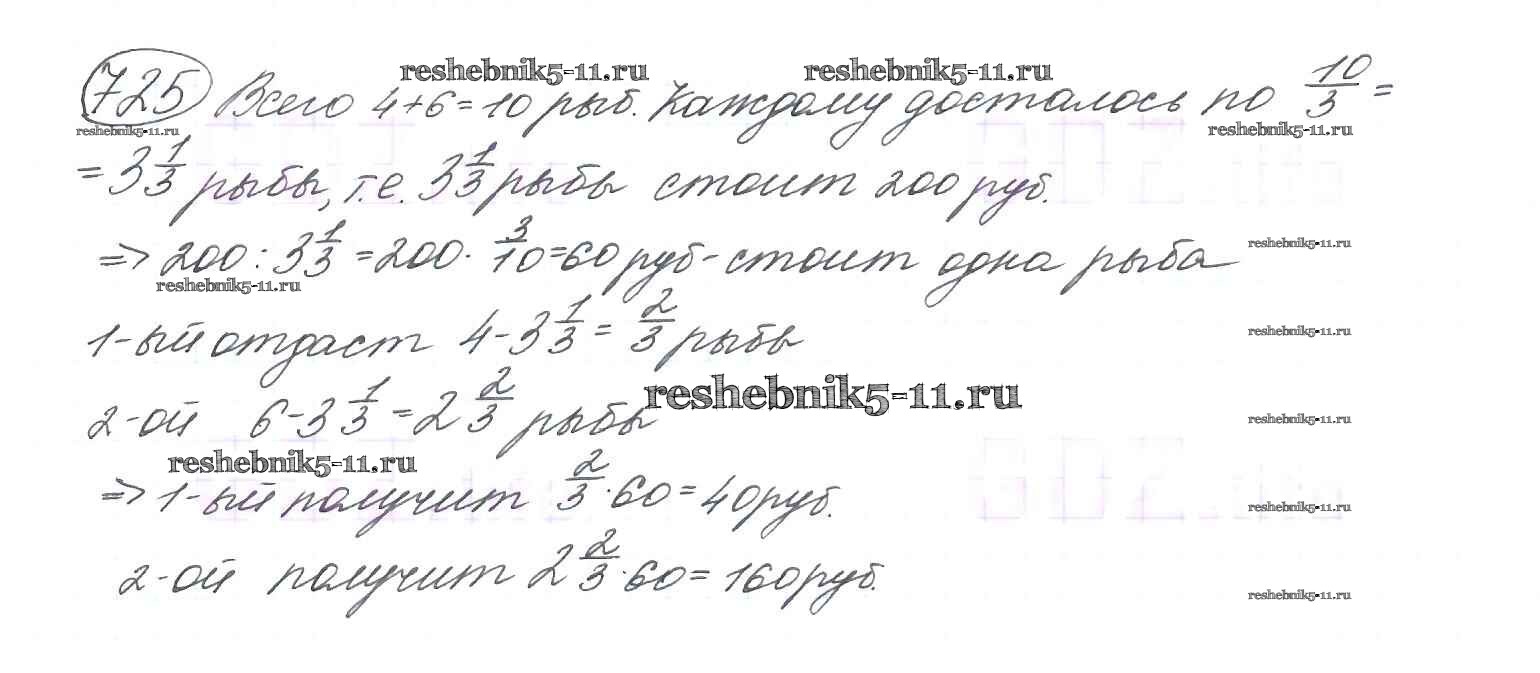 reshebnik5-11.ru reshebnik5-11.ru
725 Всего 4+6=10 рыб. Каждому досталось по 10/3 =
reshebnik5-11.ru reshebnik5-11.ru
= 3 1/3 рыбы, т.е. 3 1/3 рыбы стоит 200 руб.
=> 200 : 3 1/3 = 200 · 3/10 = 60 руб - стоит одна рыба reshebnik5-11.ru
reshebnik5-11.ru
1-ый отдаст 4 - 3 1/3 = 2/3 рыбы reshebnik5-11.ru
reshebnik5-11.ru
2-ой 6 - 3 1/3 = 2 2/3 рыбы reshebnik5-11.ru
reshebnik5-11.ru
=> 1-ый получит 2/3 · 60 = 40 руб. reshebnik5-11.ru
2-ой получит 2 2/3 · 60 = 160 руб.
reshebnik5-11.ru